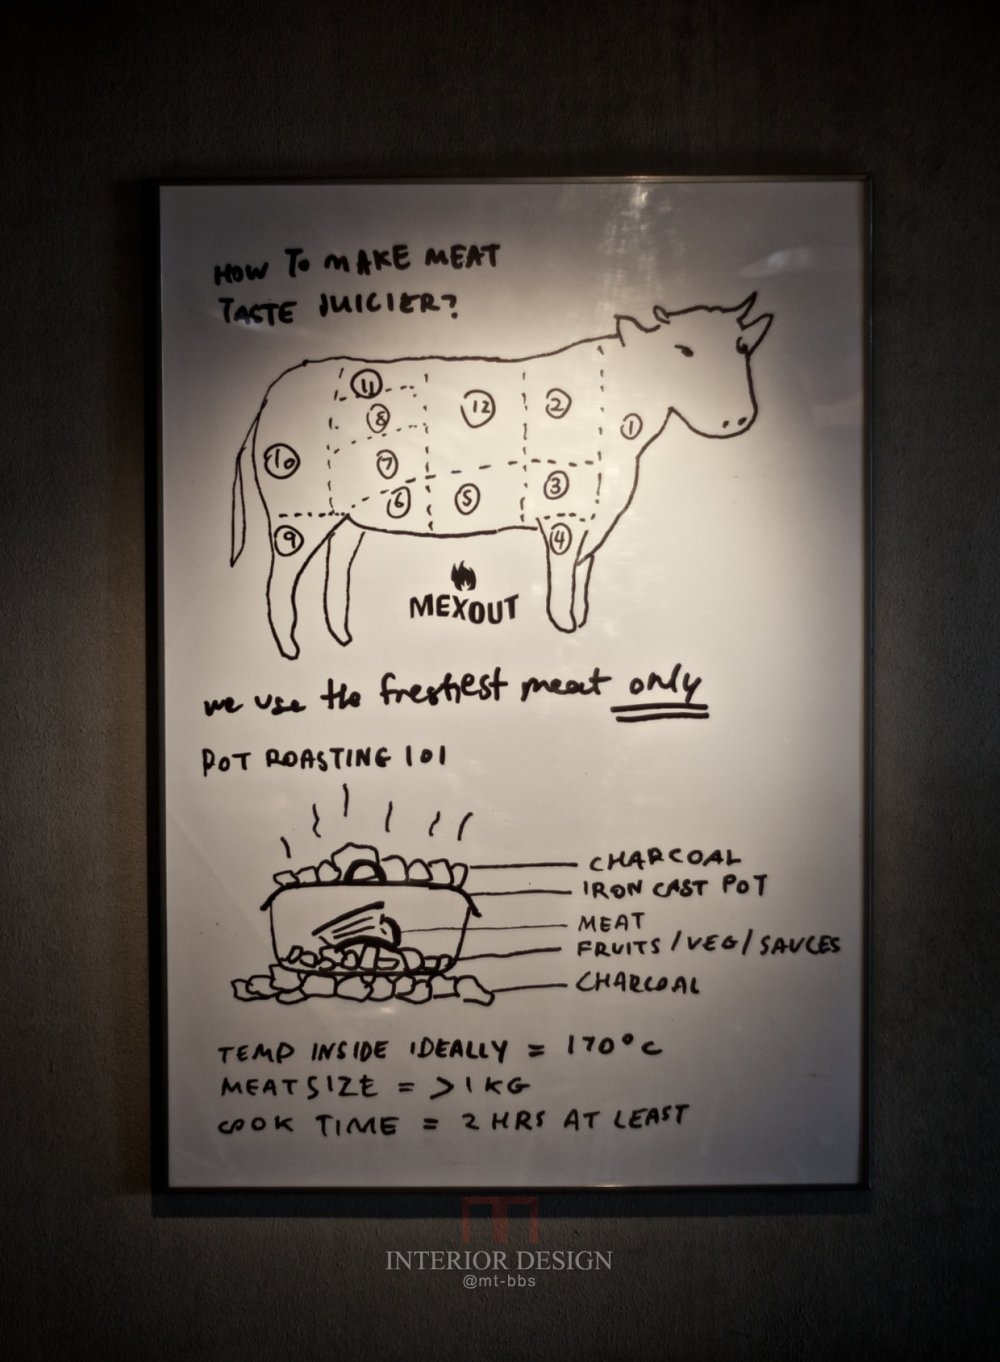 HOW TO MAKE MEAT
TASTE JUICIER?
11
8
12
2
1
10
7
6
5
3
9
4
MEXOUT
we use the freshest meat only
POT ROASTING 101
CHARCOAL
IRON CAST POT
MEAT
FRUITS/VEG/SAUCES
CHARCOAL
TEMP INSIDE IDEALLY = 170°C
MEAT SIZE = >1KG
COOK TIME = 2 HRS AT LEAST
INTERIOR DESIGN
@mt-bbs